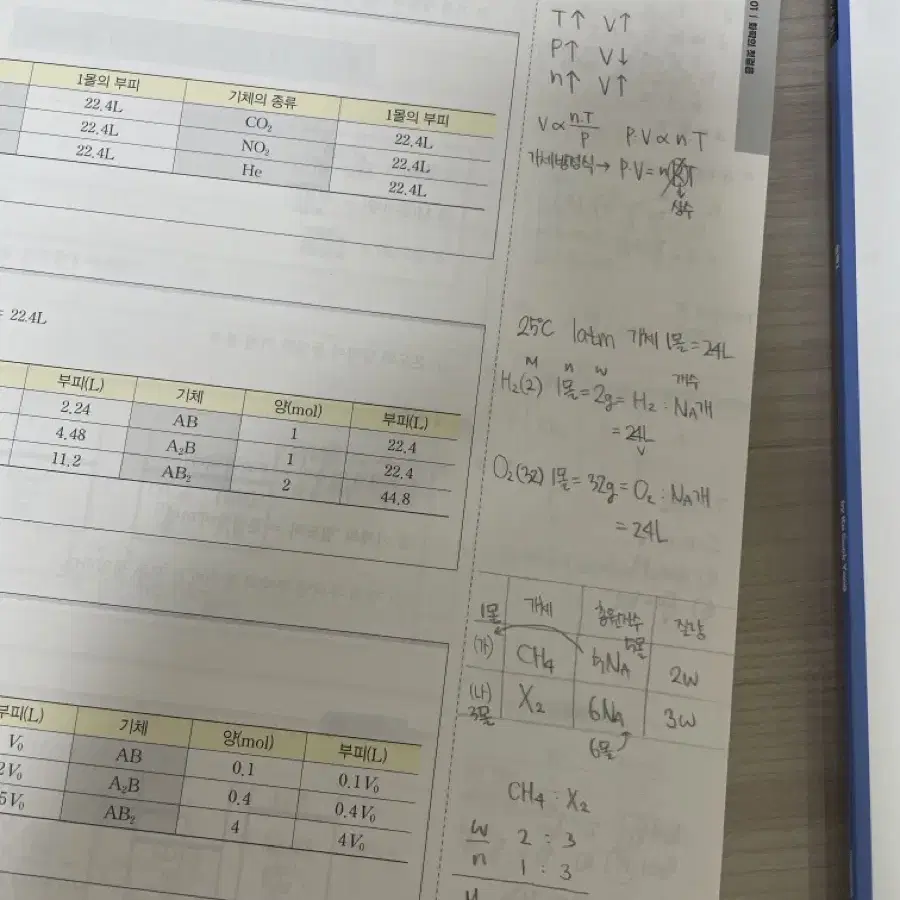 01 | 화학의 첫걸음
1몰의 부피 기체의 종류 1몰의 부피
22.4L CO₂ 22.4L
22.4L NO₂ 22.4L
22.4L He 22.4L
= 22.4L
부피(L) 기체 양(mol) 부피(L)
2.24 AB 1 22.4
4.48 A₂B 1 22.4
11.2 AB₂ 2 44.8
부피(L) 기체 양(mol) 부피(L)
V₀ AB 0.1 0.1V₀
2V₀ A₂B 0.4 0.4V₀
5V₀ AB₂ 4 4V₀
T↑ V↑
P↑ V↓
n↑ V↑
V∝ n.T/P P.V∝n.T
기체방정식→ P.V=nRT
상수
25°C 1atm 기체 1몰=24L
M n w 개수
H₂(2) 1몰=2g=H₂:NA개
=24L
V
O₂(32) 1몰=32g=O₂:NA개
=24L
1몰 기체 총원자수 질량
5몰
(가) CH₄ 5NA 2w
(나) X₂ 6NA 3w
3몰
6몰
CH₄:X₂
w 2:3
n 1:3
M